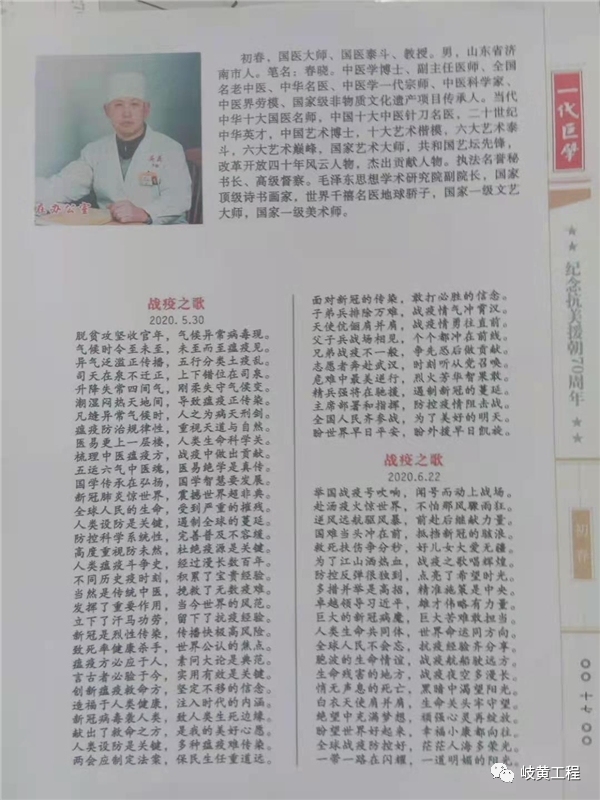 初春，国医大师、国医泰斗、教授。男，山东省济
南市人。笔名：春晓。中医学博士、副主任医师、全国
名老中医、中华名医、中医学一代宗师、中医科学家、
中医界劳模、国家级非物质文化遗产项目传承人。当代
中华十大国医名师，中国十大中医针刀名医，二十世纪
中华英才，中国艺术博士，十大艺术楷模，六大艺术泰
斗。六大艺术巅峰，国家艺术大师，共和国艺坛先锋，
改革开放四十年风云人物，杰出贡献人物。执法名誉秘
书长、高级督察。毛泽东思想学术研究院副院长，国家
顶级诗书画家，世界千禧名医地球骄子，国家一级文艺
大师，国家一级美术师。
在办公室
战疫之歌
2020.5.30
脱贫攻坚收官年，气候异常病毒现。
气候时令至未至，未至而至瘟疫见。
异气泛滥正传播，五行分类土疫乱。
司天在泉不迁正，上下错位在司泉。
升降失常四间气，刚柔失守气候变。
潮湿闷热天地间，导致瘟疫正传染。
凡缝异常气候时，人之为病天刑剑。
瘟疫防治规律性，重视天道与自然。
医易更上一层楼，人类生命科学关。
梳理中医瘟疫方，战疫中做出贡献。
五运六气中医魂，医易绝学是真传。
国学传承在弘扬，国学智慧要发展。
新冠肺炎惊世界，震撼世界超非典。
全球人民的生命，受到严重的摧残。
人类设防是关键，遏制全球的蔓延。
防控科学系统性，完善普及不容缓。
高度重视防未然，杜绝疫源是关键。
人类瘟疫斗争史，经过漫长数百年。
不同历史疫时刻，积累了宝贵经验。
当然是传统中医，挽救了无数疫难。
发挥了重要作用，当今世界的风范。
立下了汗马功劳，留下了抗疫经验。
新冠是烈性传染，传播快极高风险。
致死率健康杀手，世界公认的焦点。
瘟疫方必应于人，素问大论是典范。
言古者必验于今，实用有效是关键。
创新瘟疫救命方，坚定不移的信念。
造福于人类健康，注入时代的内涵。
新冠病毒袭人类，致人类生死边缘。
献出了救命之方，是我的美好心愿。
人类设防是关键，多种瘟疫难传染。
两会应制定法案，保民生任重道远。
面对新冠的传染，敢打必胜的信念。
子弟兵排除万难，战疫情气冲霄汉。
天使伉俪肩并肩，战疫情勇往直前。
父子兵战场相见，个个都冲在前线。
兄弟战疫不一般，争先恐后做贡献。
志愿者奔赴武汉，时刻听从党召唤。
危难中最美逆行，烈火芳华智果敢。
精兵强将在驰援，遏制新冠的蔓延。
主席部署和指挥，防控疫情阻击战。
全国人民齐参战，为了美好的明天。
盼世界早日平安，盼外援早日凯旋。
战疫之歌
2020.6.22
举国战疫号吹响，闻号而动上战场。
赴汤疫火惊世界，不怕那风骤雨狂。
逆风远航驱风暴，前赴后继献力量。
国难当头冲在前，抵挡新冠的骇浪。
救死扶伤争分秒，好儿女大爱无疆。
为了江山洒热血，战疫之歌唱辉煌。
防控反弹很独到，点亮了希望时光。
多措并举是高招，精准施策是中央。
卓越领导习近平，雄才伟略有力量。
巨大的新冠病魔，巨大苦难敢担当。
人类生命共同体，世界命运同方向。
全球人民不会忘，抗疫经验齐分享。
胞波的生命情谊，战疫航船驶远方。
生命残害的地方，战疫夜空多漫长。
悄无声息的死亡，黑暗中渴望阳光。
白衣天使肩并肩，生命关头牢守望。
绝望中充满梦想，顽强心灵再绽放。
盼望世界好起来，幸福小康都向往。
全球战疫防控好，茫茫人海多荣光。
一带一路在闪耀，一道明媚的阳光。
一代巨笔
★★纪念抗美援朝70周年★★
初春
岐黄工程